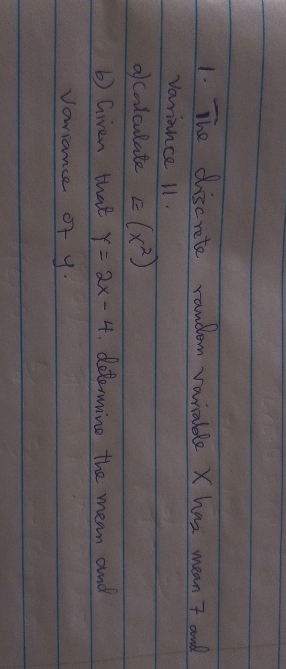 1. The discrete random variable X has mean 7 and
variance 11.
a) Calculate E(x²)
b) Given that Y = 2x - 4. determine the mean and
variance of y.